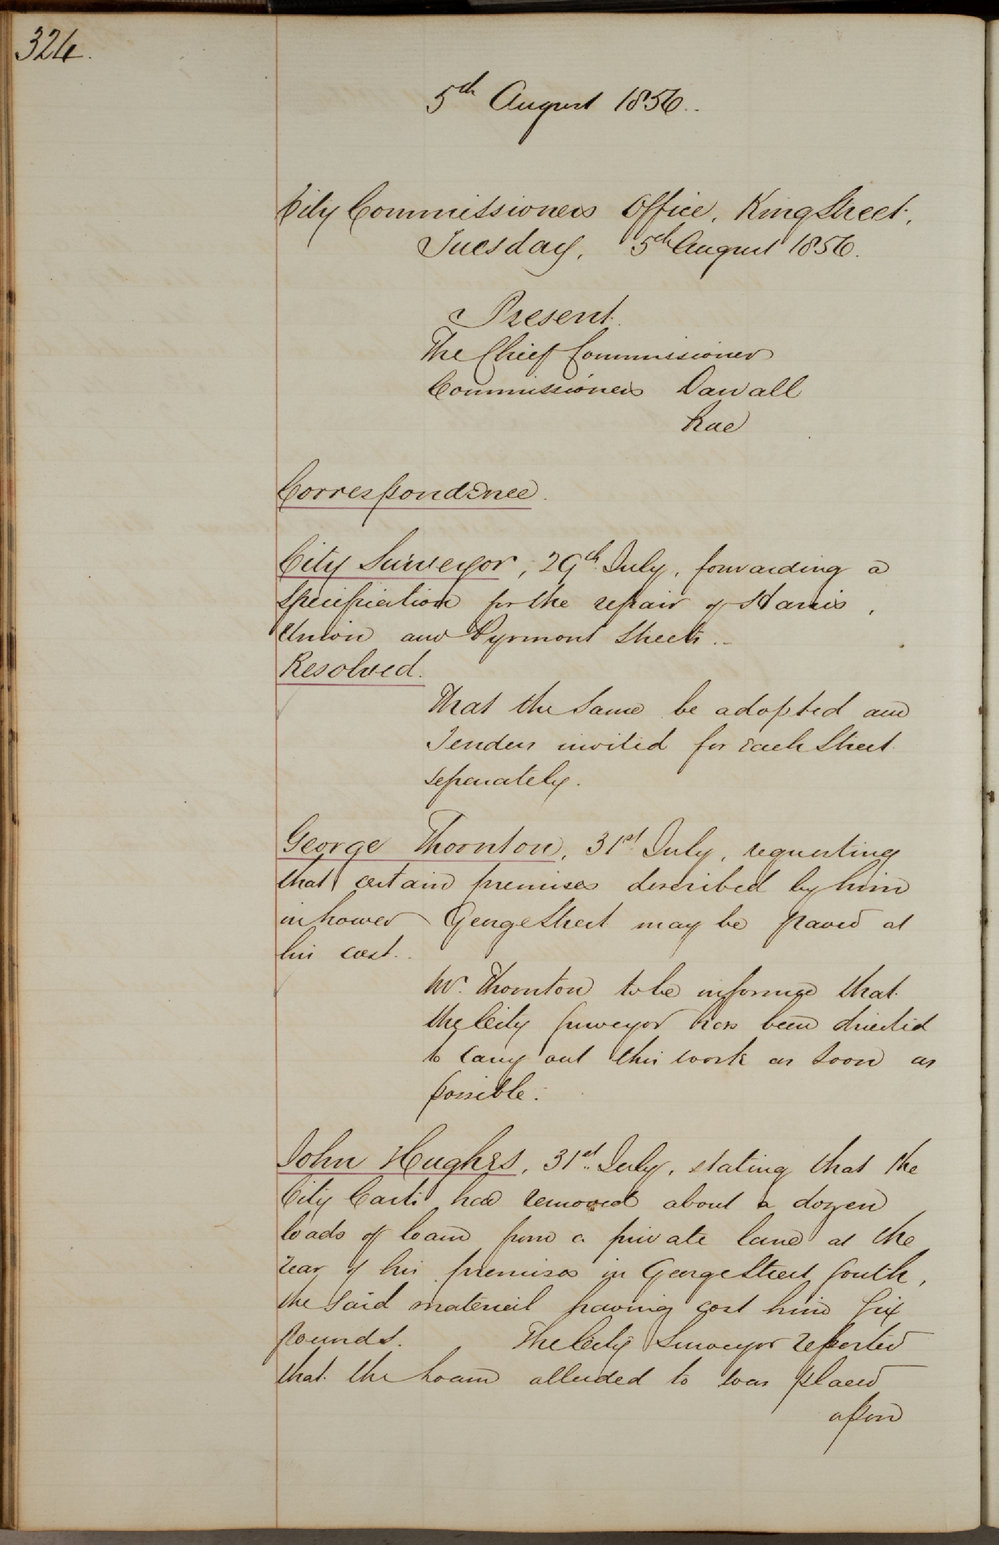 324.
5th August 1856.
City Commissioners Office, King Street,
Tuesday, 5th August 1856.
Present
The Chief Commissioner
Commissioners Darvall
Rae
Correspondence.
City Surveyor, 29th July, forwarding a
Specification for the repair of Harris,
Union and Pyrmont Streets.
Resolved.
That the same be adopted and
Tenders invited for each Street
separately.
George Thornton, 31st July, requesting
that certain premises described by him
in Lower George Street may be paved at
his cost.
Mr. Thornton to be informed that
the City Surveyor has been directed
to carry out this work as soon as
possible.
John Hughes, 31st July, stating that the
City Carts had removed about a dozen
loads of loam from a private lane at the
rear of his premises in George Street South,
the said material having cost him Six
pounds. The City Surveyor reported
that the Loam alluded to was placed
upon